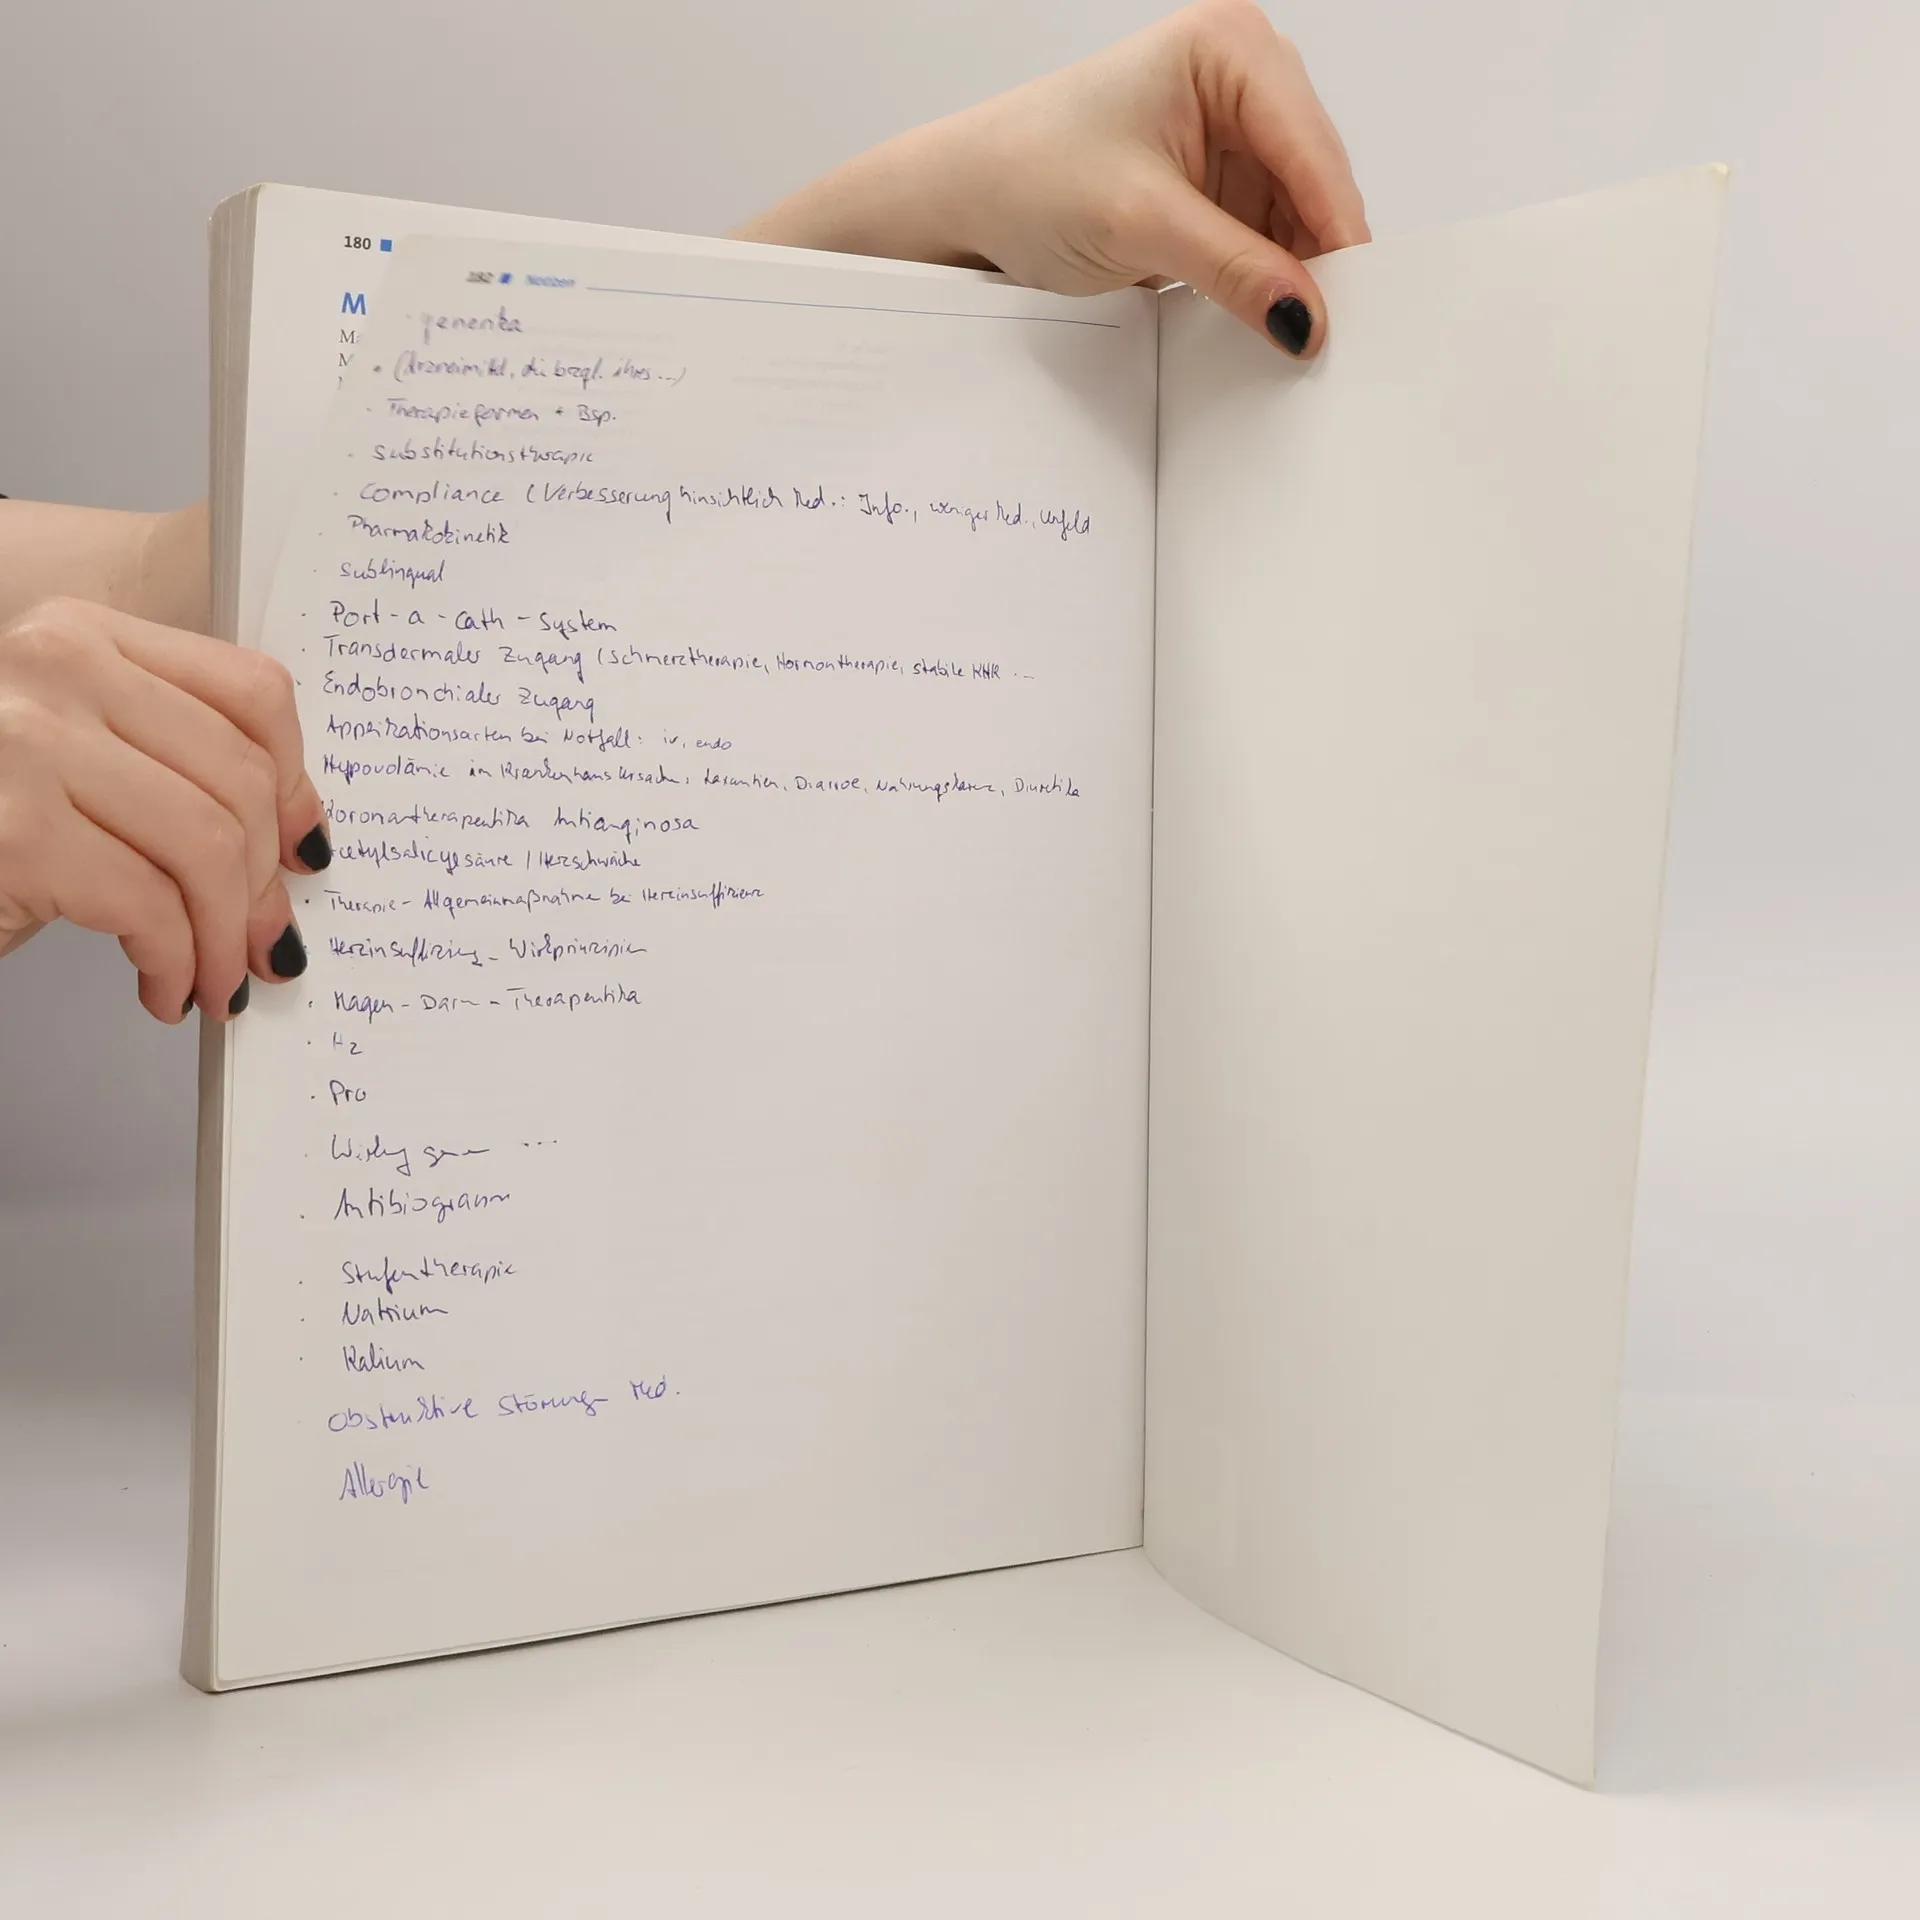 180
182 Notizen
M
M
M
· generika
· (Arzneimittel, die bzgl. ihres ...)
· Therapieformen + Bsp.
· Substitutionstherapie
· Compliance (Verbesserung hinsichtlich Med.: Info., weniger Med., Umfeld
· Pharmakokinetik
· sublingual
· Port-a-cath-System
· Transdermaler Zugang (Schmerztherapie, Hormontherapie, stabile KHK ...
· Endobronchialer Zugang
Applikationsarten bei Notfall: iv, endo
Hypovolämie im Krankenhaus Ursache: Laxantien, Diarroe, Nahrungskarenz, Diuretika
Koronartherapeutika Antianginosa
Acetylsalicylsäure / Herzschwäche
· Therapie - Allgemeinmaßnahme bei Herzinsuffizienz
· Herzinsuffizienz - Wirkprinzipien
· Magen - Darm - Therapeutika
· H2
· Pro
· Wirkung ...
· Antibiogramm
· Stufentherapie
· Natrium
· Kalium
· Obstruktive Störung - Med.
Allergie